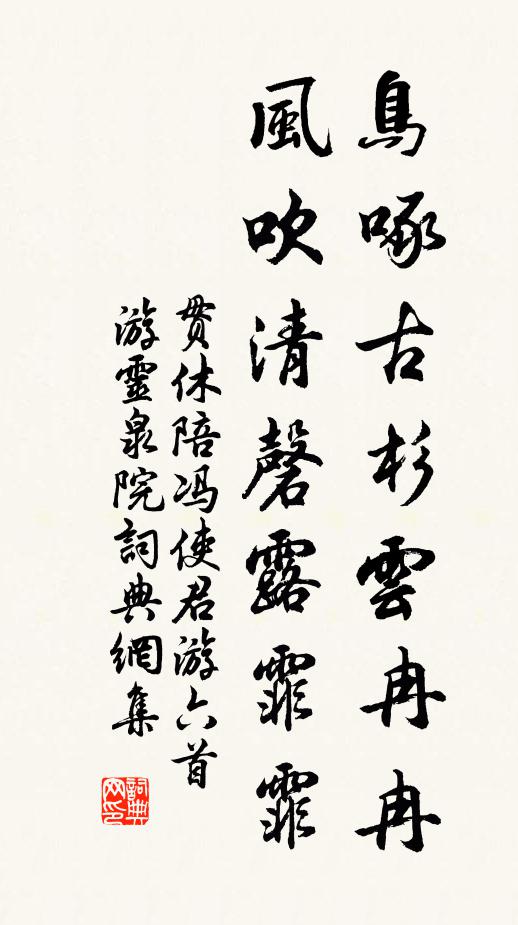 鳥啄古杉雲冉冉
風吹清磬露霏霏
贯休陪冯使君游六首
游靈泉院詞典網集
詞典网印